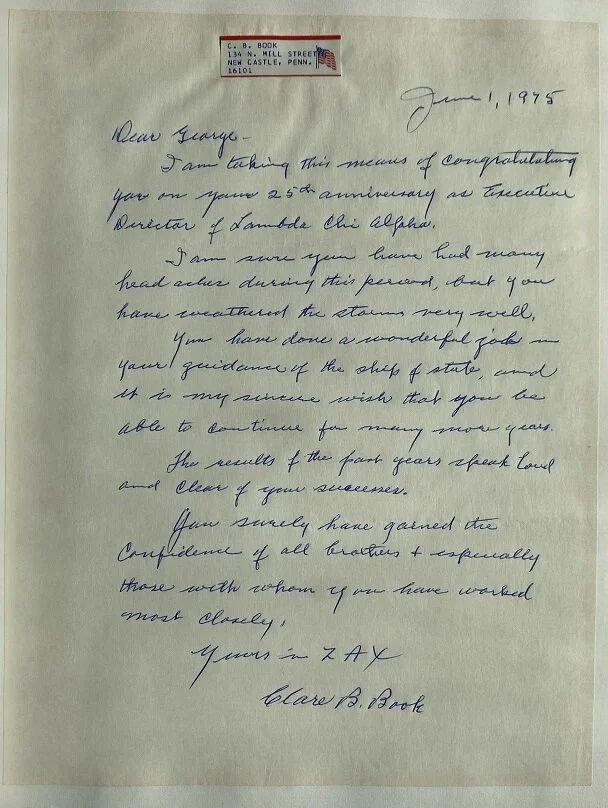 C. B. BOOK
134 N. MILL STREET
NEW CASTLE, PENN.
16101
June 1, 1975
Dear George-
I am taking this means of congratulating
you on your 25th anniversary as Executive
Director of Lambda Chi Alpha.
I am sure you have had many
head aches during this period, but you
have weathered the storms very well.
You have done a wonderful job in
your guidance of the ship of state, and
it is my sincere wish that you be
able to continue for many more years.
The results of the past years speak loud
and clear of your successes.
You surely have gained the
confidence of all brothers + especially
those with whom you have worked
most closely.
Yours in ZAX
Clare B. Book